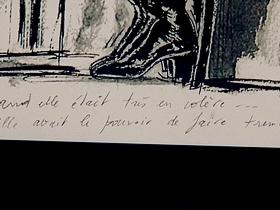 and elle était très en colère ...
elle avait le pouvoir de faire trem